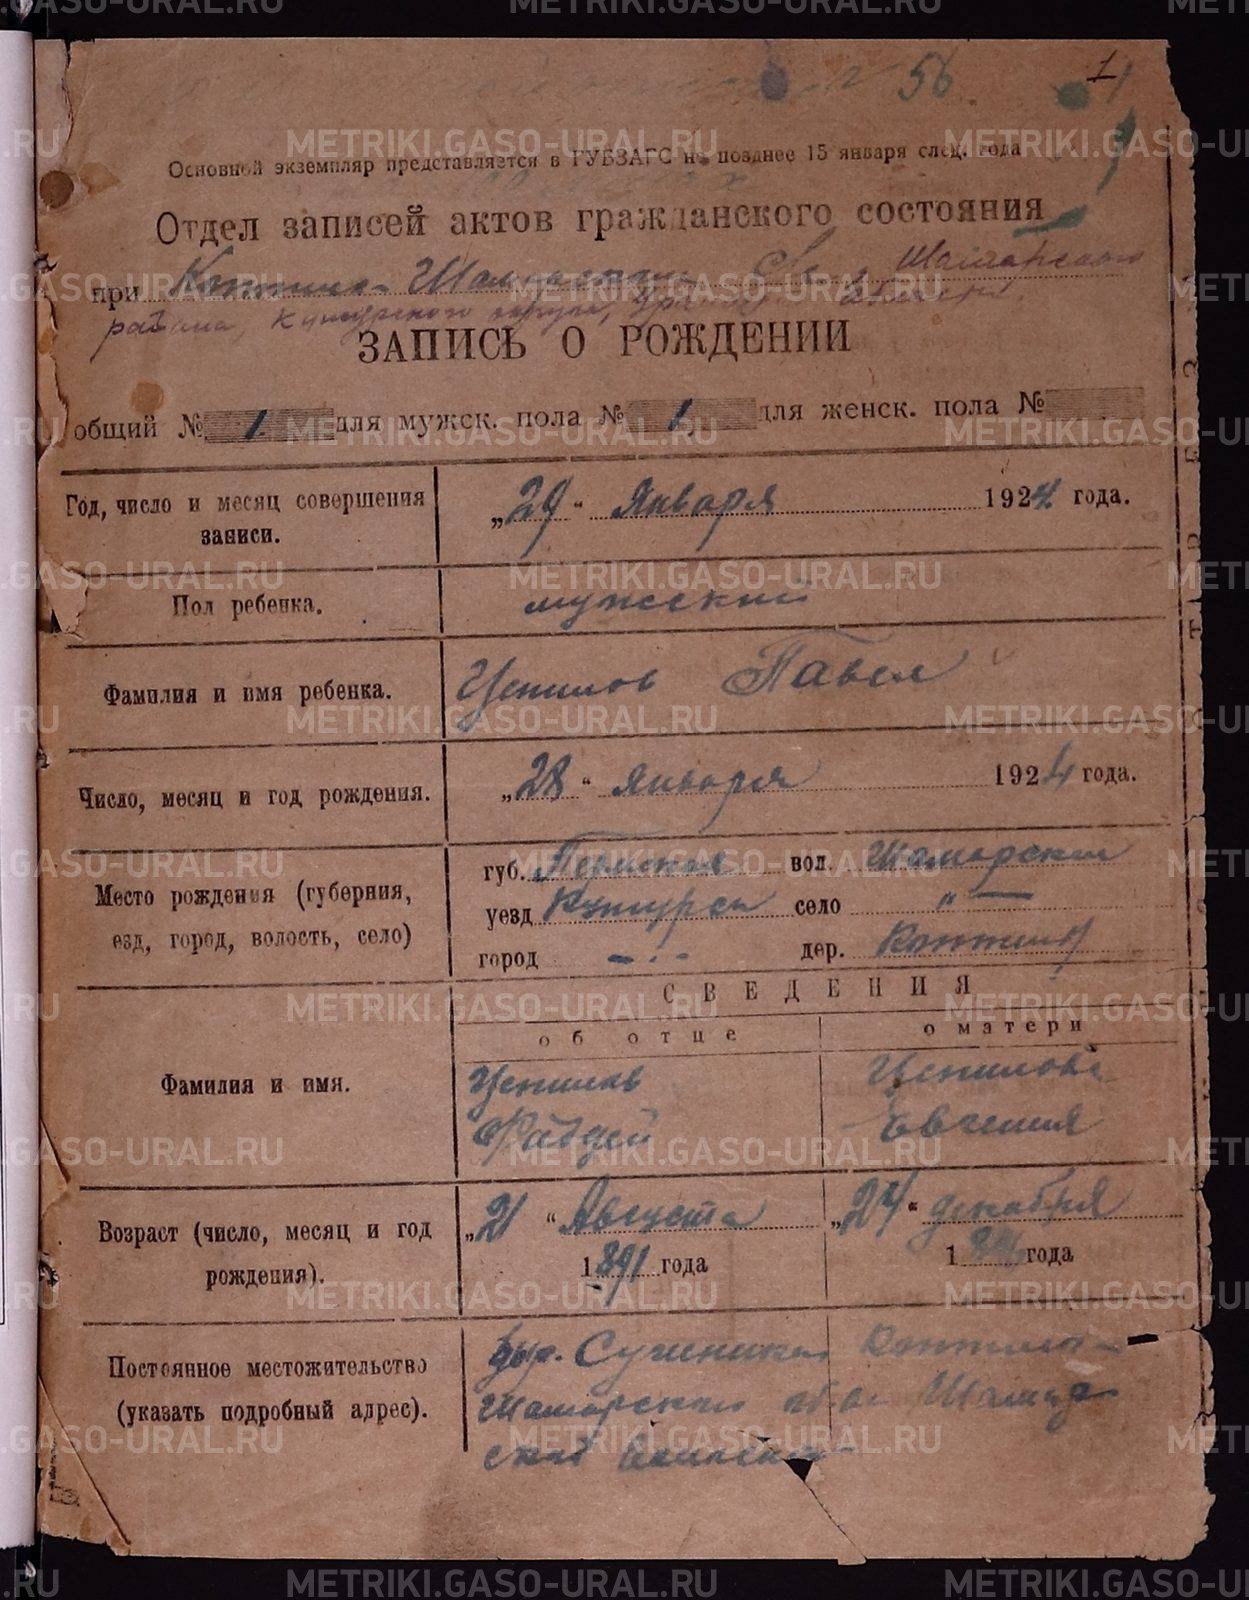 56
1
Основной экземпляр представляется в ГУБЗАГС не позднее 15 января след. года
Отдел записей актов гражданского состояния
при Шамарского
района, Кунгурского округа,
ЗАПИСЬ О РОЖДЕНИИ
общий № 1 для мужск. пола № 1 для женск. пола №
Год, число и месяц совершения „29“ Января 1924 года.
записи.
Пол ребенка. мужской
Фамилия и имя ребенка. Цепилов Павел
Число, месяц и год рождения. „28“ января 1924 года.
Место рождения (губерния, губ. Пермская вол. Шамарская
езд, город, волость, село) уезд Кунгурск село " —
город — дер.
СВЕДЕНИЯ
об отце о матери
Фамилия и имя. Цепилов Цепилова
Фаддей Евгения
Возраст (число, месяц и год „21“ Августа „24“ декабря
рождения). 1891 года 1 года
Постоянное местожительство
(указать подробный адрес). Шамарской
METRIKI.GASO-URAL.RU